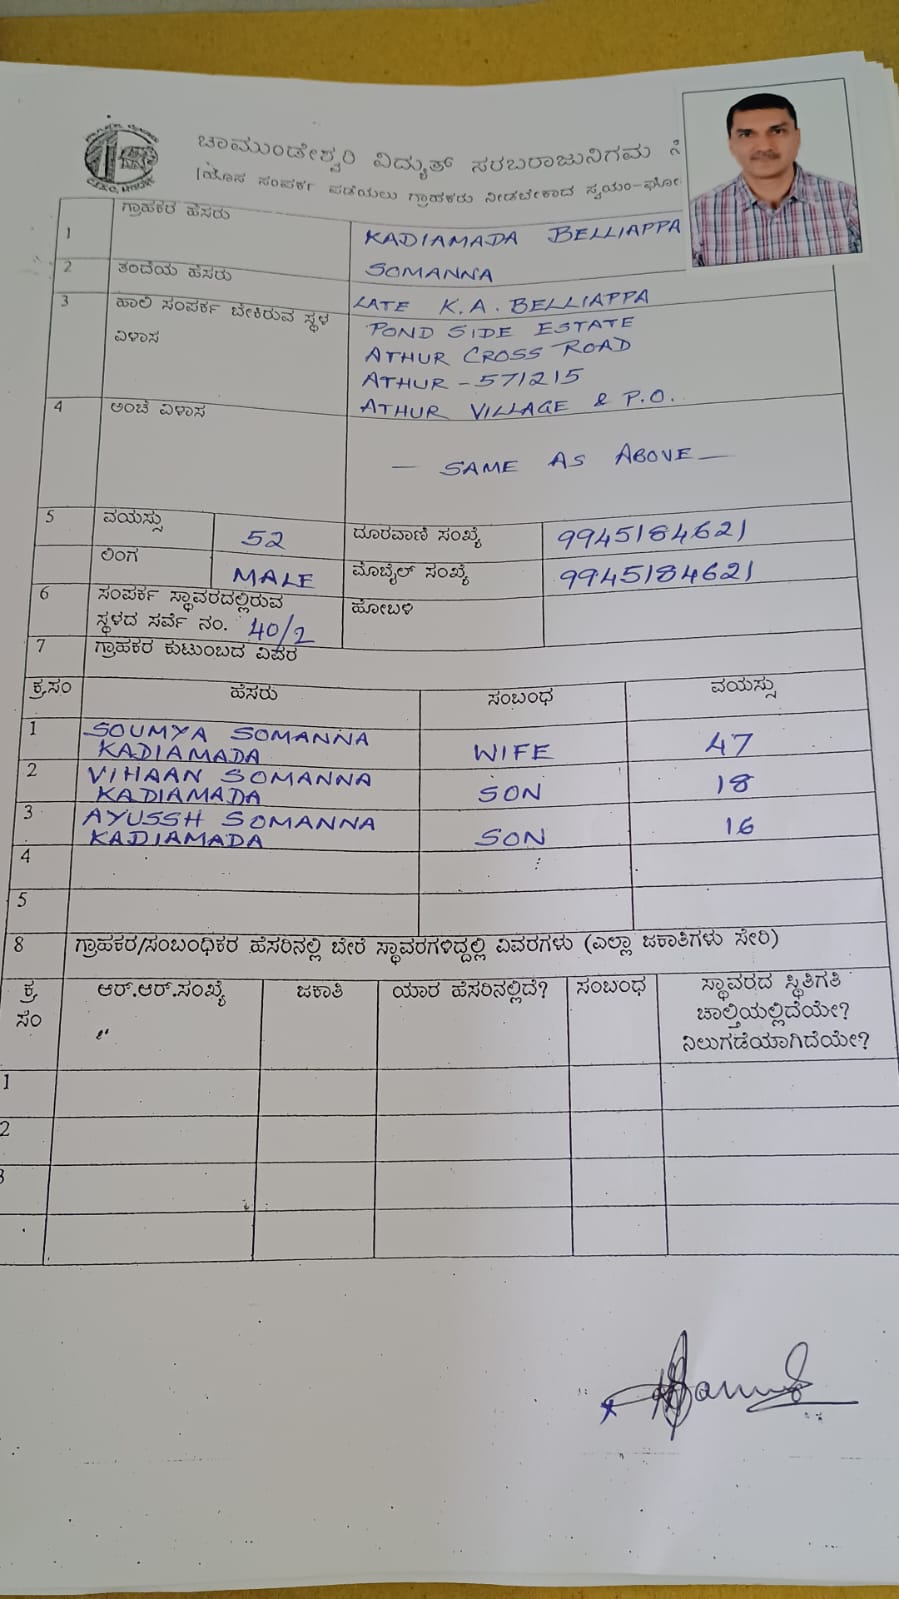 ಚಾಮುಂಡೇಶ್ವರಿ ವಿದ್ಯುತ್ ಸರಬರಾಜುನಿಗಮ
(ಹೊಸ ಸಂಪರ್ಕ ಪಡೆಯಲು ಗ್ರಾಹಕರು ನೀಡಬೇಕಾದ ಸ್ವಯಂ-ಘೋ
1 ಗ್ರಾಹಕರ ಹೆಸರು KADIAMADA BELLIAPPA
SOMANNA
2 ತಂದೆಯ ಹೆಸರು LATE K.A. BELLIAPPA
3 ಹಾಲಿ ಸಂಪರ್ಕ ಬೇಕಿರುವ ಸ್ಥಳ POND SIDE ESTATE
ವಿಳಾಸ ATHUR CROSS ROAD
ATHUR - 571215
ATHUR VILLAGE & P.O.
4 ಅಂಚೆ ವಿಳಾಸ
— SAME AS ABOVE —
5 ವಯಸ್ಸು 52 ದೂರವಾಣಿ ಸಂಖ್ಯೆ 9945184621
ಲಿಂಗ MALE ಮೊಬೈಲ್ ಸಂಖ್ಯೆ 9945184621
6 ಸಂಪರ್ಕ ಸ್ಥಾವರದಲ್ಲಿರುವ ಹೋಬಳಿ
ಸ್ಥಳದ ಸರ್ವೆ ನಂ. 40/2
7 ಗ್ರಾಹಕರ ಕುಟುಂಬದ ವಿವರ
ಕ್ರ.ಸಂ ಹೆಸರು ಸಂಬಂಧ ವಯಸ್ಸು
1 SOUMYA SOMANNA
KADIAMADA WIFE 47
2 VIHAAN SOMANNA
KADIAMADA SON 18
3 AYUSSH SOMANNA
KADIAMADA SON 16
4
5
8 ಗ್ರಾಹಕರ/ಸಂಬಂಧಿಕರ ಹೆಸರಿನಲ್ಲಿ ಬೇರೆ ಸ್ಥಾವರಗಳಿದ್ದಲ್ಲಿ ವಿವರಗಳು (ಎಲ್ಲಾ ಜಕಾತಿಗಳು ಸೇರಿ)
ಕ್ರ ಆರ್.ಆರ್.ಸಂಖ್ಯೆ ಜಕಾತಿ ಯಾರ ಹೆಸರಿನಲ್ಲಿದೆ? ಸಂಬಂಧ ಸ್ಥಾವರದ ಸ್ಥಿತಿಗತಿ
ಸಂ ಚಾಲ್ತಿಯಲ್ಲಿದೆಯೇ?
ನಿಲುಗಡೆಯಾಗಿದೆಯೇ?
1
2
3